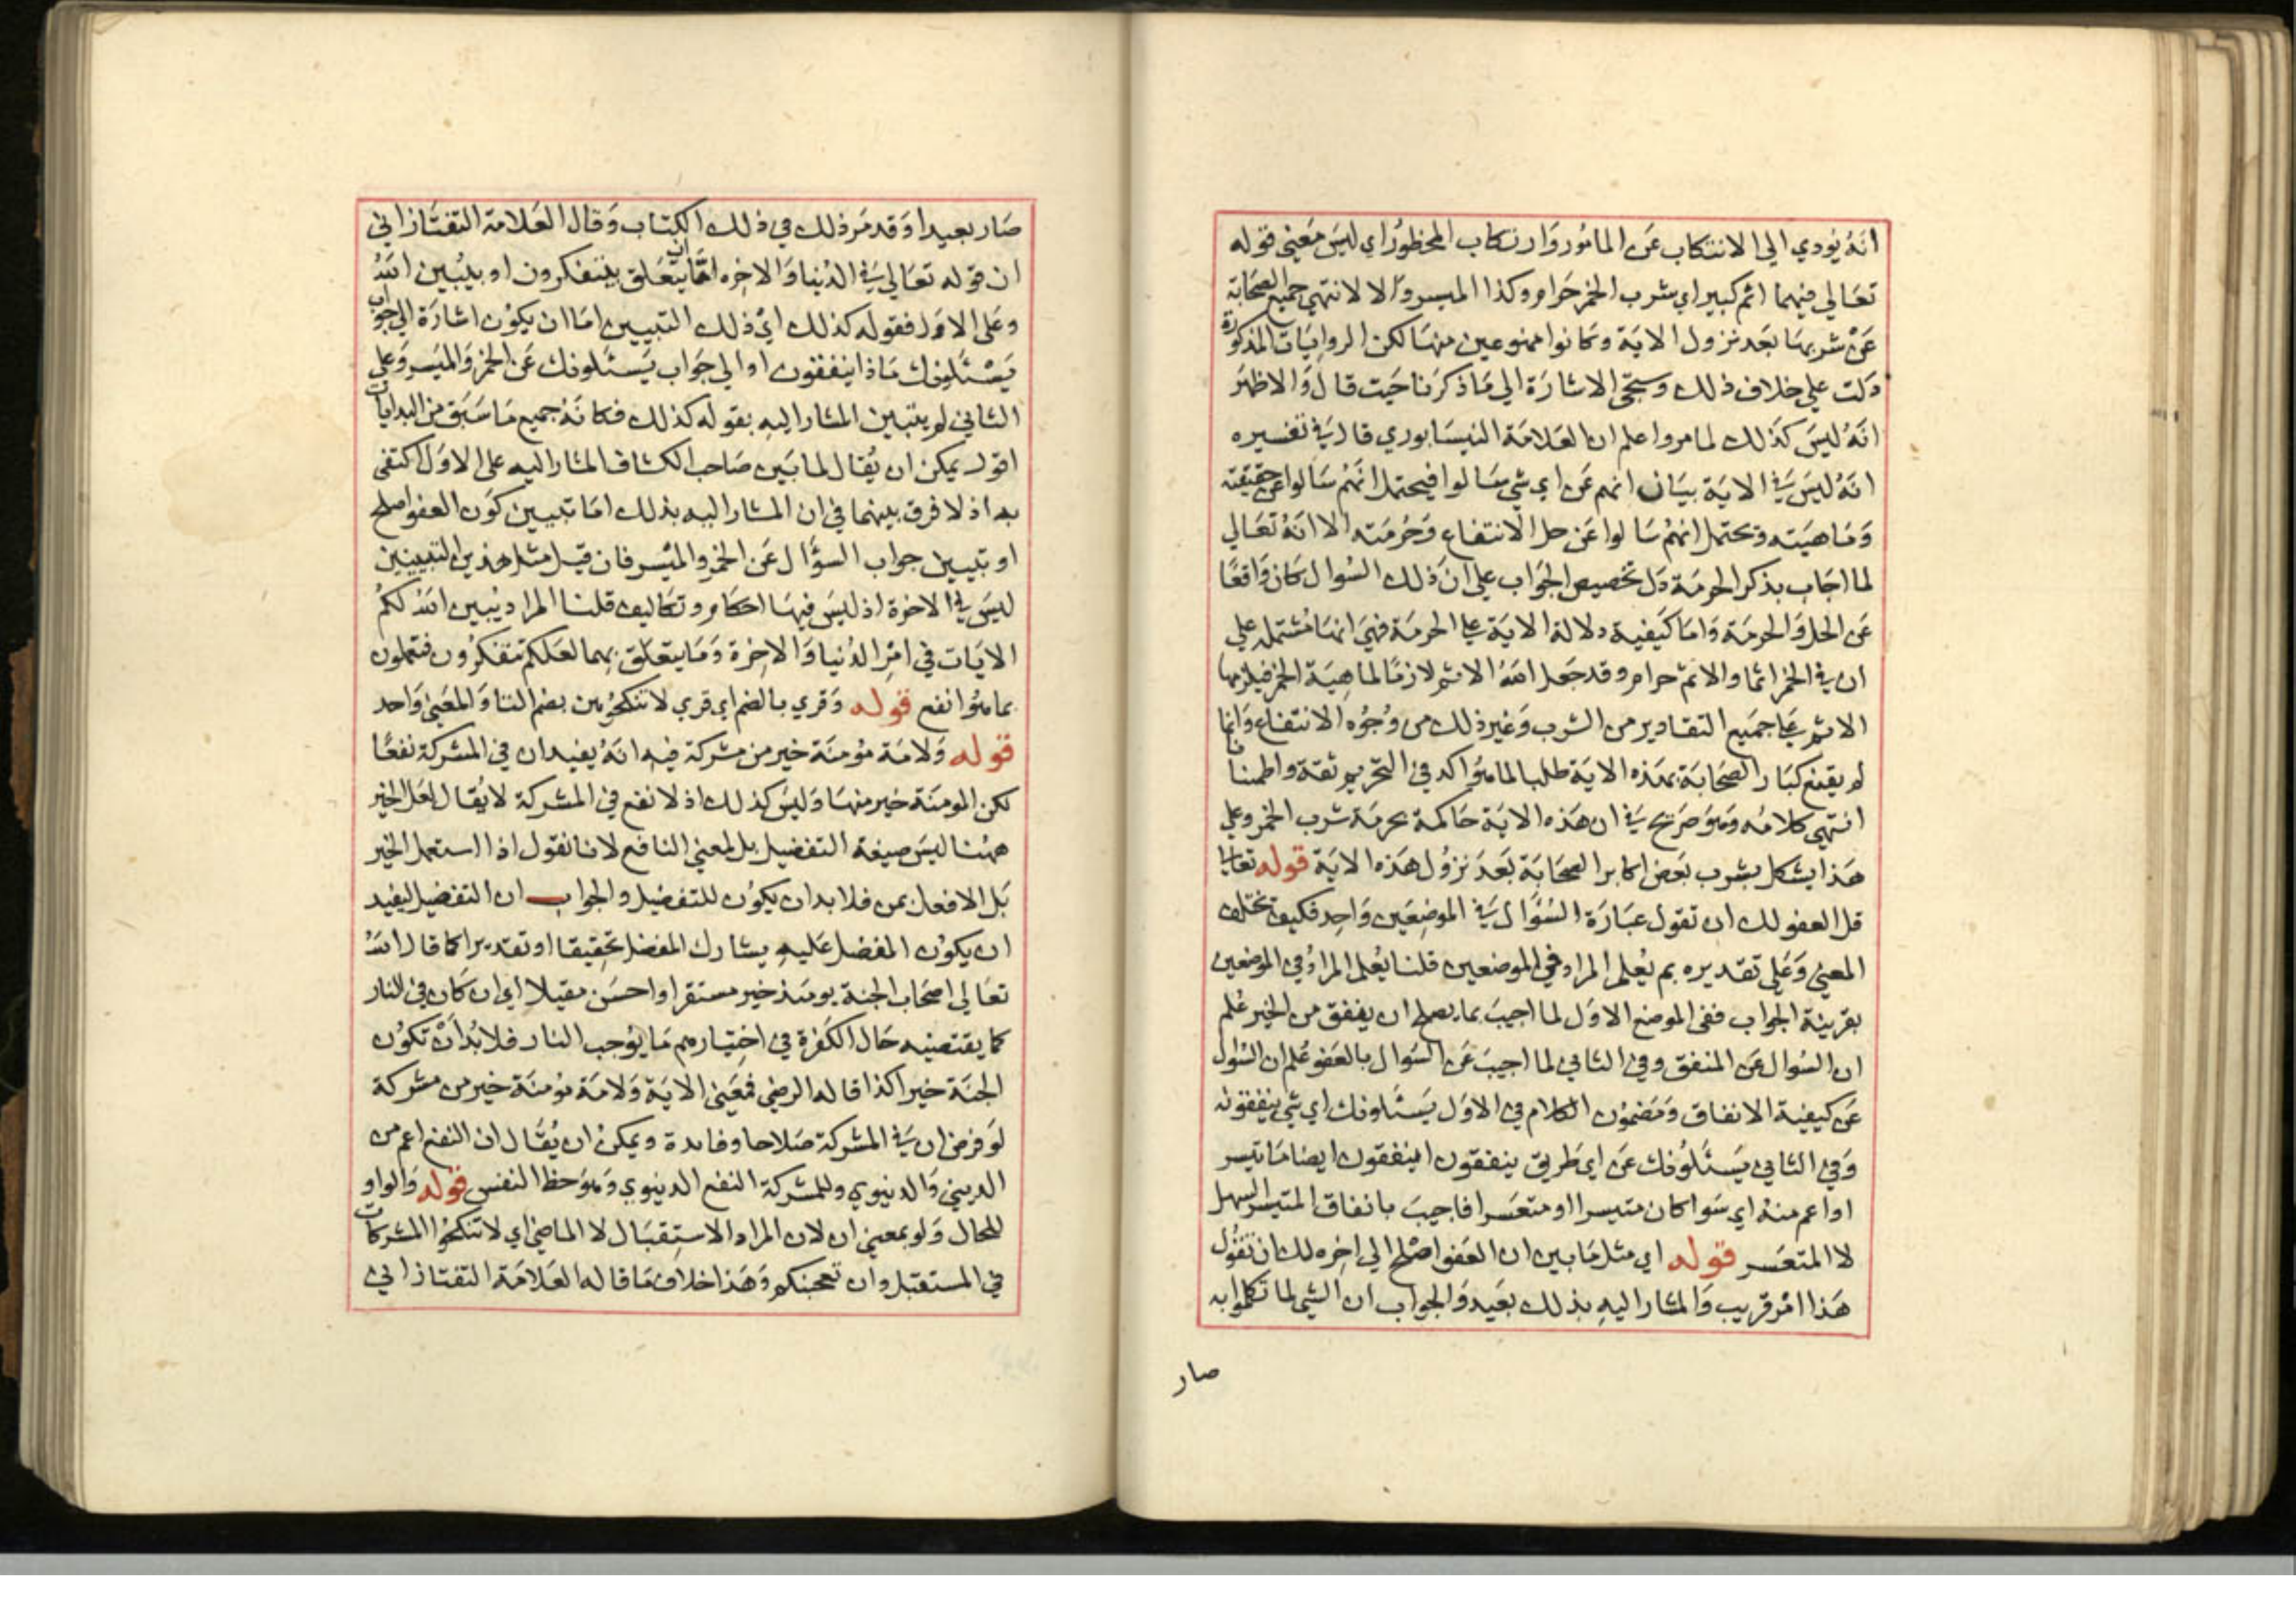 انه يودي الي الانتكاب عن المامور وارتكاب المحظور اي ليس معني قوله
تعالي فيهما اثم كبير اي شرب الخمر حرام وكذا الميسر والا لانتهي جميع الصحابة
عن شربها بعد نزول الاية وكانوا ممنوعين منها لكن الروايات المذكورة
دلت علي خلاف ذلك وستجي الاشارة الي ما ذكرنا حيث قال والاظهر
انه ليس كذلك لما مر واعلم ان العلامة النيسابوري قال في تفسيره
انه ليس في الاية بيان انهم عن اي شي سالوا فيحتمل انهم سالوا عن حقيقته
وماهيته ويحتمل انهم سالوا عن حل الانتفاع وحرمته الا انه تعالي
لما اجاب بذكر الحرمة دل تخصيص الجواب علي ان ذلك السوال كان واقعا
عن الحل والحرمة واما كيفية دلالة الاية علي الحرمة فهي انها مشتملة علي
ان في الخمر اثما والاثم حرام وقد جعل الله الاثم لازما لماهية الخمر فيلزمها
الاثم علي جميع التقادير من الشرب وغير ذلك من وجوه الانتفاع وانما
لم يقنع كبار الصحابة بهذه الاية طلبا لما هو اكد في التحريم ثقة واطمنانا
انتهي كلامه وهو صريح في ان هذه الاية حاكمة بحرمة شرب الخمر وعلي
هذا يشكل بشرب بعض اكابر الصحابة بعد نزول هذه الاية قوله تعالي
قل العفو لك ان تقول عبارة السؤال في الموضعين واحد فكيف تختلف
المعني وعلي تقديره بم يعلم المراد في الموضعين قلنا يعلم المراد في الموضعين
بقرينة الجواب ففي الموضع الاول لما اجيب بما يصلح ان ينفق من الخير علم
ان السوال عن المنفق وفي الثاني لما اجيب عن السوال بالعفو علم ان السوال
عن كيفية الانفاق ومضمون الكلام في الاول يسئلونك اي شي ينفقونه
وفي الثاني يسئلونك عن اي طريق ينفقون اينفقون ايضا ما تيسر
او اعم منه اي سوا كان متيسرا او متعسرا فاجيب بانفاق المتيسر السهل
لا المتعسر قوله اي مثل ما بين ان العفو اصلح الي اخره لك ان تقول
هذا امر قريب والمشار اليه بذلك بعيد والجواب ان الشي لما تكلموا به
صار
صار بعيدا وقد مر ذلك في ذلك الكتاب وقال العلامة التفتازاني
ان قوله تعالي في الدنيا والاخره اما ان يتعلق بيتفكرون او بيبين الله
وعلي الاول فقوله كذلك اي ذلك التبيين اما ان يكون اشارة الي جواب
يسئلونك ماذا ينفقون او الي جواب يسئلونك عن الخمر والميسر وعلي
الثاني لم يتبين المشار اليه بقوله كذلك فكانه جميع ما سبق من البدايات
اقول يمكن ان يقال لما بين صاحب الكشاف المشار اليه علي الاول اكتفي
به اذ لا فرق بينهما في ان المشار اليه بذلك اما تبيين كون العفو اصلح
او تبيين جواب السؤال عن الخمر والميسر فان قيل مثل هذين التبيينين
ليس في الاخرة اذ ليس فيها احكام وتكاليف قلنا المراد يبين الله لكم
الايات في امر الدنيا والاخرة وما يتعلق بهما لعلكم تتفكرون فتعملون
بما هو انفع قوله وقري بالضم اي قري لا تنكحوهن بضم التا والمعني واحد
قوله ولامة مؤمنة خير من مشركة فيه انه يفيد ان في المشركة نفعا
لكن المومنة خير منها وليس كذلك اذ لا نفع في المشركة لا يقال لعل الخير
ههنا ليس صيغة التفضيل بل لمعني النافع لانا نقول اذا استعمل الخير
بل الافعل بمن فلا بد ان يكون للتفضيل والجواب ان التفضيل يفيد
ان يكون المفضل عليه يشارك المفضل تحقيقا او تقديرا كما قال الله
تعالي اصحاب الجنة يومئذ خير مستقرا واحسن مقيلا اي ان كان في النار
كما يقتضيه حال الكفرة في اختيارهم ما يوجب النار فلا بد ان تكون
الجنة خيرا كذا قاله الرضي فمعني الاية ولامة مؤمنة خير من مشركة
لو فرض ان في المشركة صلاحا وفائدة ويمكن ان يقال ان النفع اعم من
الديني والدنيوي وللمشركة النفع الدنيوي وهو حظ النفس قوله والواو
للحال ولو بمعني ان لان المراد الاستقبال لا الماضي اي لا تنكحوا المشركات
في المستقبل وان تعجبنكم وهذا خلاف ما قاله العلامة التفتازاني